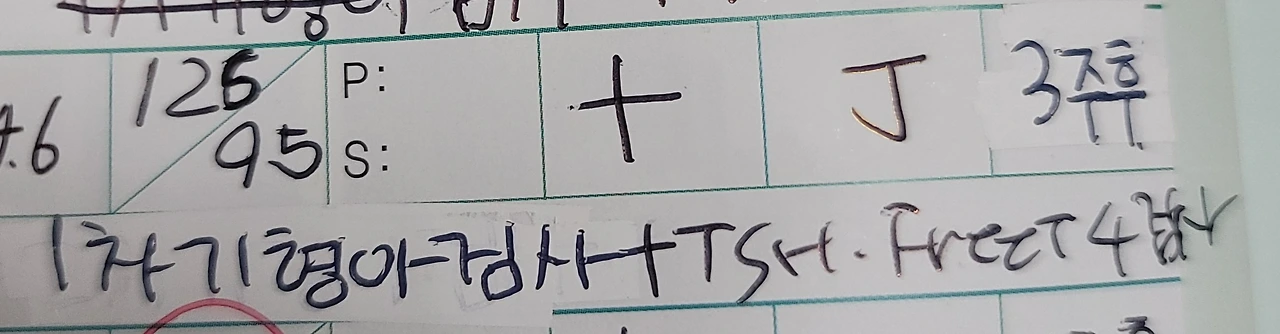 .6 126 95 P: S: + J 3주후
1차기형아검사+TSH.FreeT4검사